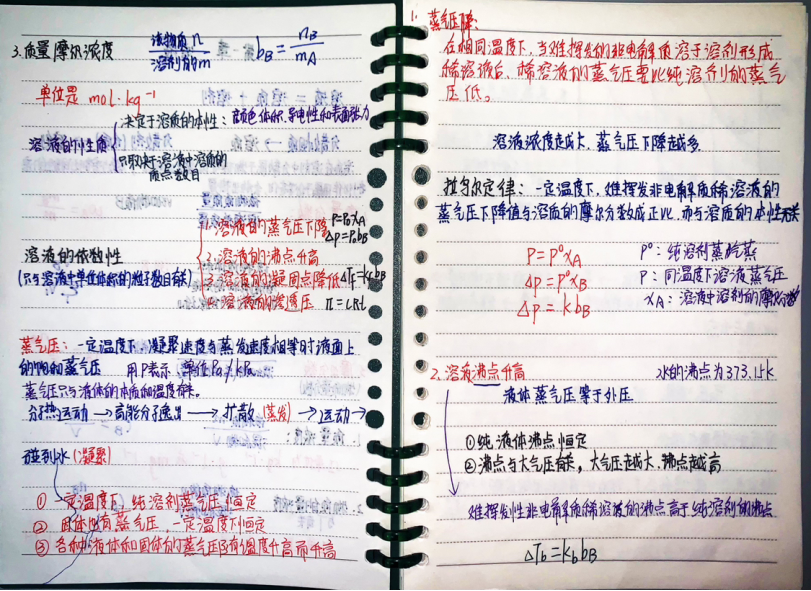 3.质量摩尔浓度 该物质n/溶剂的m bB = nB/mA
单位是 mol·kg⁻¹
溶液的性质
决定于溶质的本性：颜色体积、导电性和表面张力
只取决于溶液中溶质的
质点数目
溶液的依数性
(只与溶液中单位体积的粒子数目有关)
1.溶液的蒸气压下降 P=P₀xA
Δp=P₀bB
2.溶液的沸点升高
3.溶液的凝固点降低 ΔTf=KfbB
4.溶液的渗透压 π=cRT
蒸气压：一定温度下，凝聚速度与蒸发速度相等时液面上
的 蒸气压 用P表示，单位Pa/kPa
蒸气压只与液体的本质和温度有关。
分子热运动→高能分子逸出→扩散(蒸发)→运动→
碰到水(凝聚)
① 一定温度下，纯溶剂蒸气压恒定
② 固体也有蒸气压，一定温度下恒定
③ 各种液体和固体的蒸气压随温度升高而升高
1. 蒸气压降：
在相同温度下，当难挥发的非电解质溶于溶剂形成
稀溶液后，稀溶液的蒸气压要比纯溶剂的蒸气
压低。
溶液浓度越大，蒸气压下降越多.
拉乌尔定律：一定温度下，难挥发非电解质稀溶液的
蒸气压下降值与溶质的摩尔分数成正比，而与溶质的本性无关
P=P⁰xA P⁰：纯溶剂蒸
Δp=P⁰xB P：同温度下溶液蒸气压
Δp=kbB xA：溶液中溶剂的摩尔分数
2.溶液沸点升高 水的沸点为373.15k
液体蒸气压等于外压
①纯液体沸点恒定
②沸点与大气压有关，大气压越大，沸点越高
难挥发性非电解质稀溶液的沸点高于纯溶剂的沸点
ΔTb=kbbB